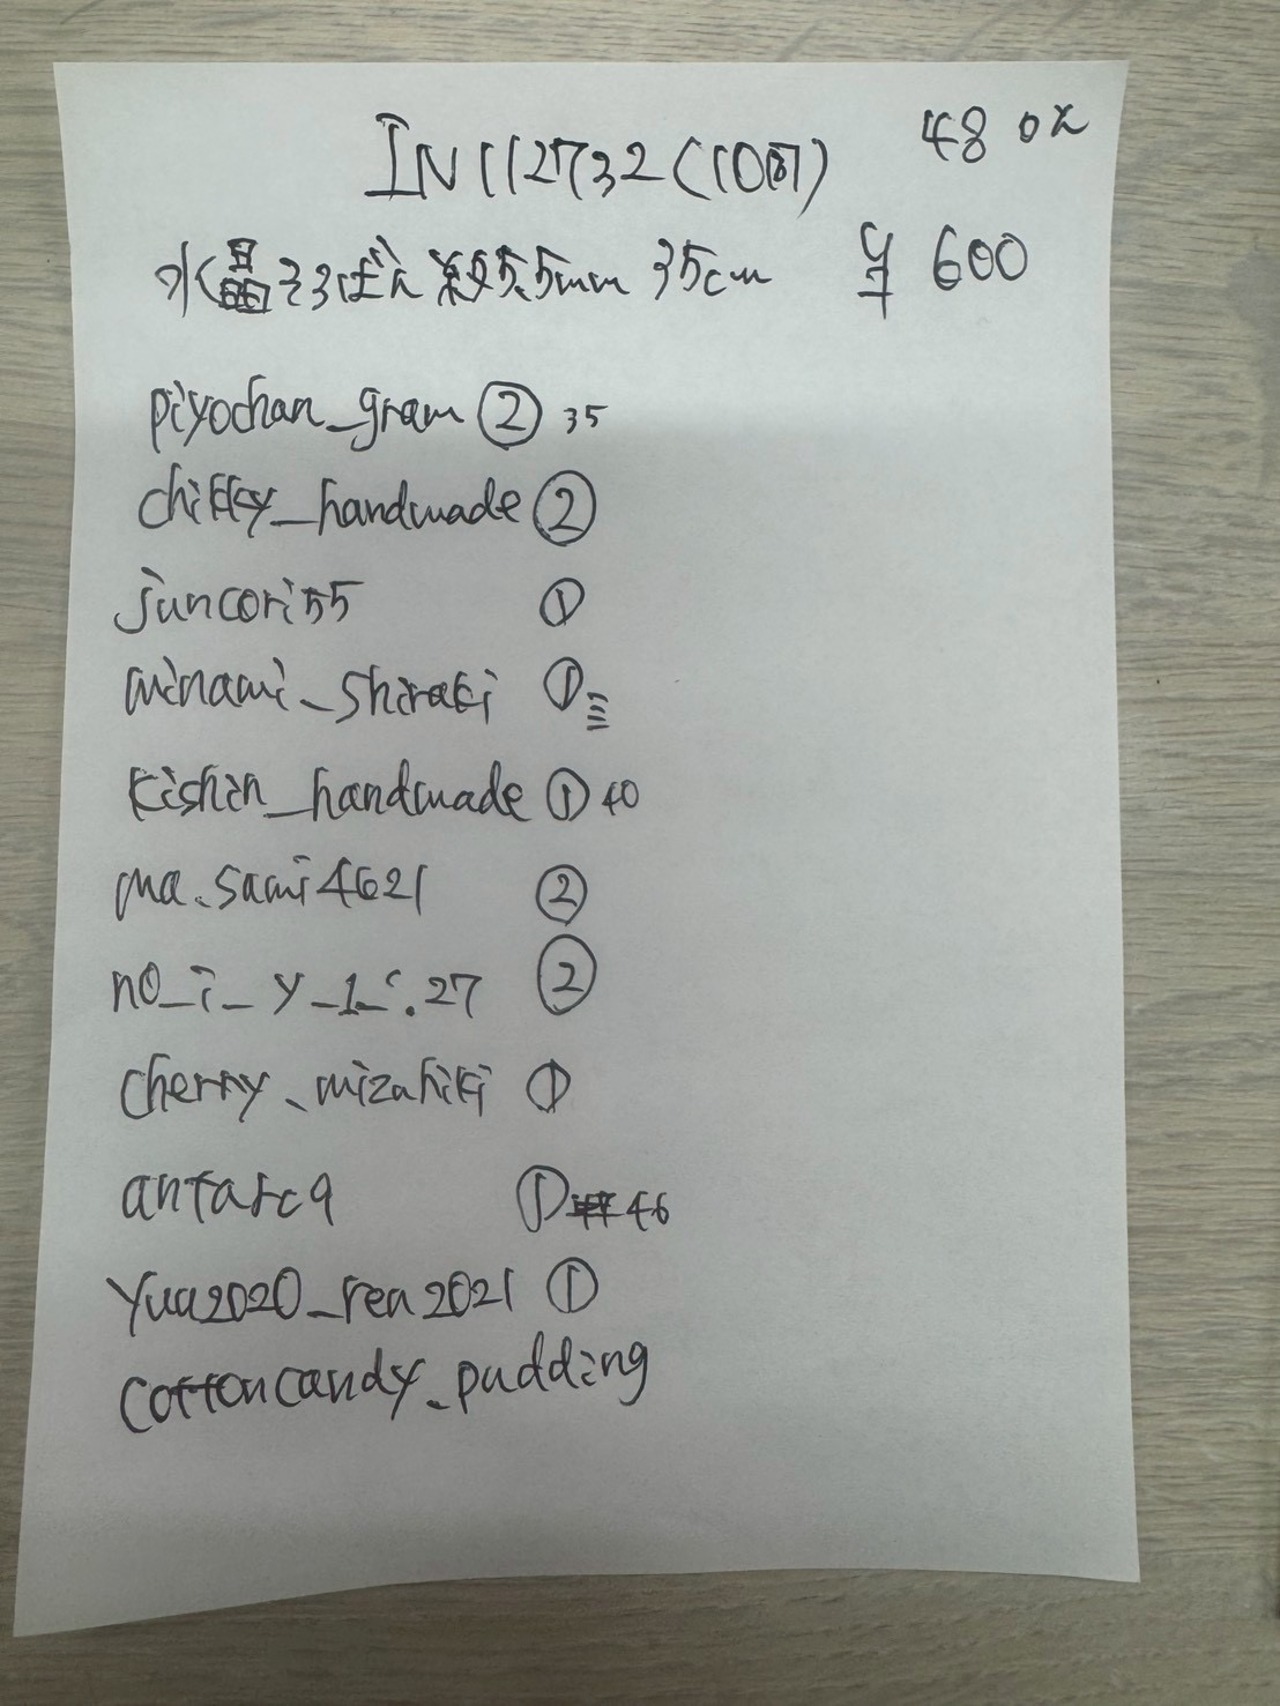 IN112732(10月)
48 ox
水晶そろばん 約5.5mm 35cm ¥600
piyochan_gram ② 35
chikky_handmade ②
juncori55 ①
minami_shiraki ①
kishin_handmade ① 40
ma.sami4621 ②
no_i_y_1_.27 ②
cherry_mizuhiki ①
antarc9 ① 46
yua2020_rea2021 ①
cottoncandy_pudding